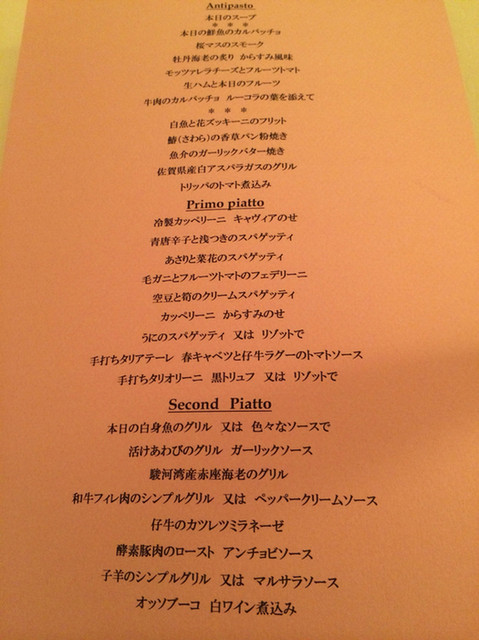 Antipasto
本日のスープ
＊ ＊ ＊
本日の鮮魚のカルパッチョ
桜マスのスモーク
牡丹海老の炙り からすみ風味
モッツァレラチーズとフルーツトマト
生ハムと本日のフルーツ
牛肉のカルパッチョ ルーコラの葉を添えて
＊ ＊ ＊
白魚と花ズッキーニのフリット
鰆(さわら)の香草パン粉焼き
魚介のガーリックバター焼き
佐賀県産白アスパラガスのグリル
トリッパのトマト煮込み
Primo piatto
冷製カッペリーニ キャヴィアのせ
青唐辛子と浅つきのスパゲッティ
あさりと菜花のスパゲッティ
毛ガニとフルーツトマトのフェデリーニ
空豆と筍のクリームスパゲッティ
カッペリーニ からすみのせ
うにのスパゲッティ 又は リゾットで
手打ちタリアテーレ 春キャベツと仔牛ラグーのトマトソース
手打ちタリオリーニ 黒トリュフ 又は リゾットで
Second Piatto
本日の白身魚のグリル 又は 色々なソースで
活けあわびのグリル ガーリックソース
駿河湾産赤座海老のグリル
和牛フィレ肉のシンプルグリル 又は ペッパークリームソース
仔牛のカツレツミラネーゼ
酵素豚肉のロースト アンチョビソース
子羊のシンプルグリル 又は マルサラソース
オッソブーコ 白ワイン煮込み